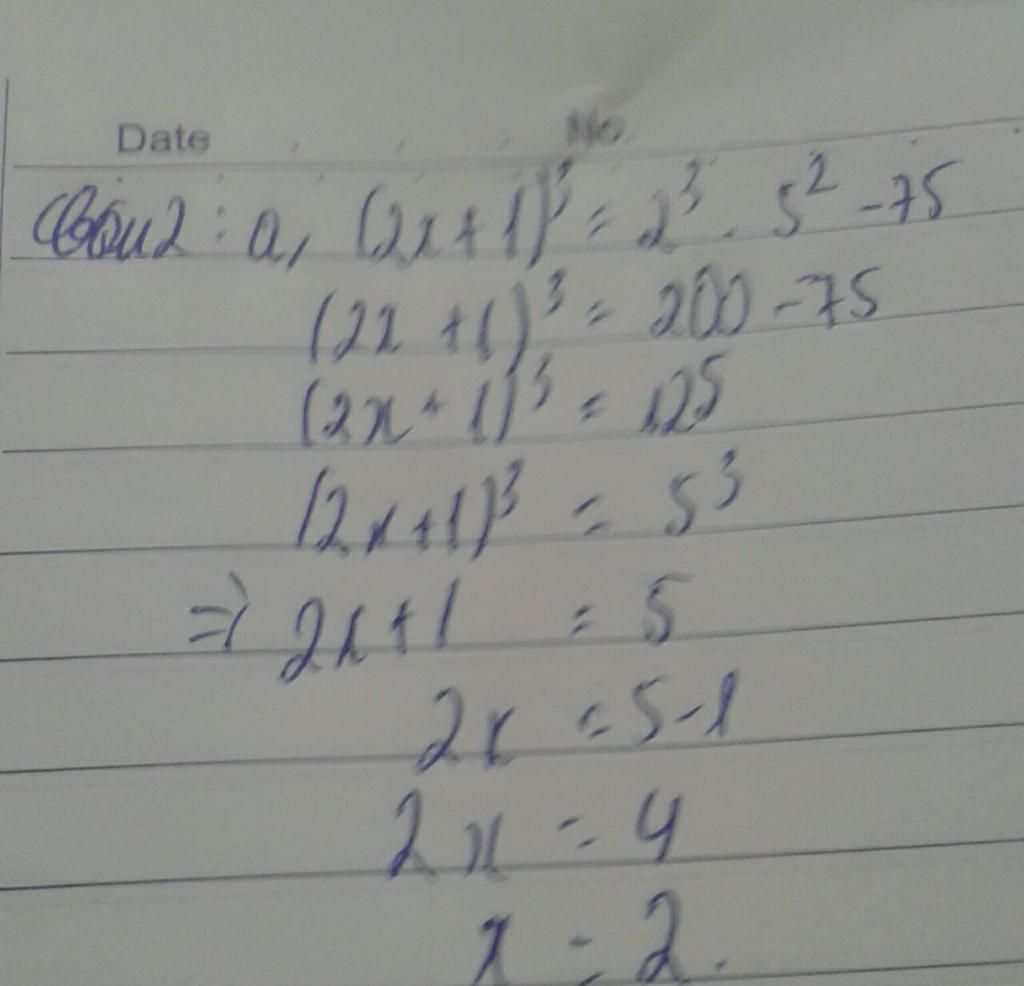 Date No
Câu 2 : a, (2x+1)³ = 2³ . 5² - 75
(2x +1)³ = 200 - 75
(2x + 1)³ = 125
(2x+1)³ = 5³
⇒ 2x+1 = 5
2x = 5-1
2x = 4
x = 2.